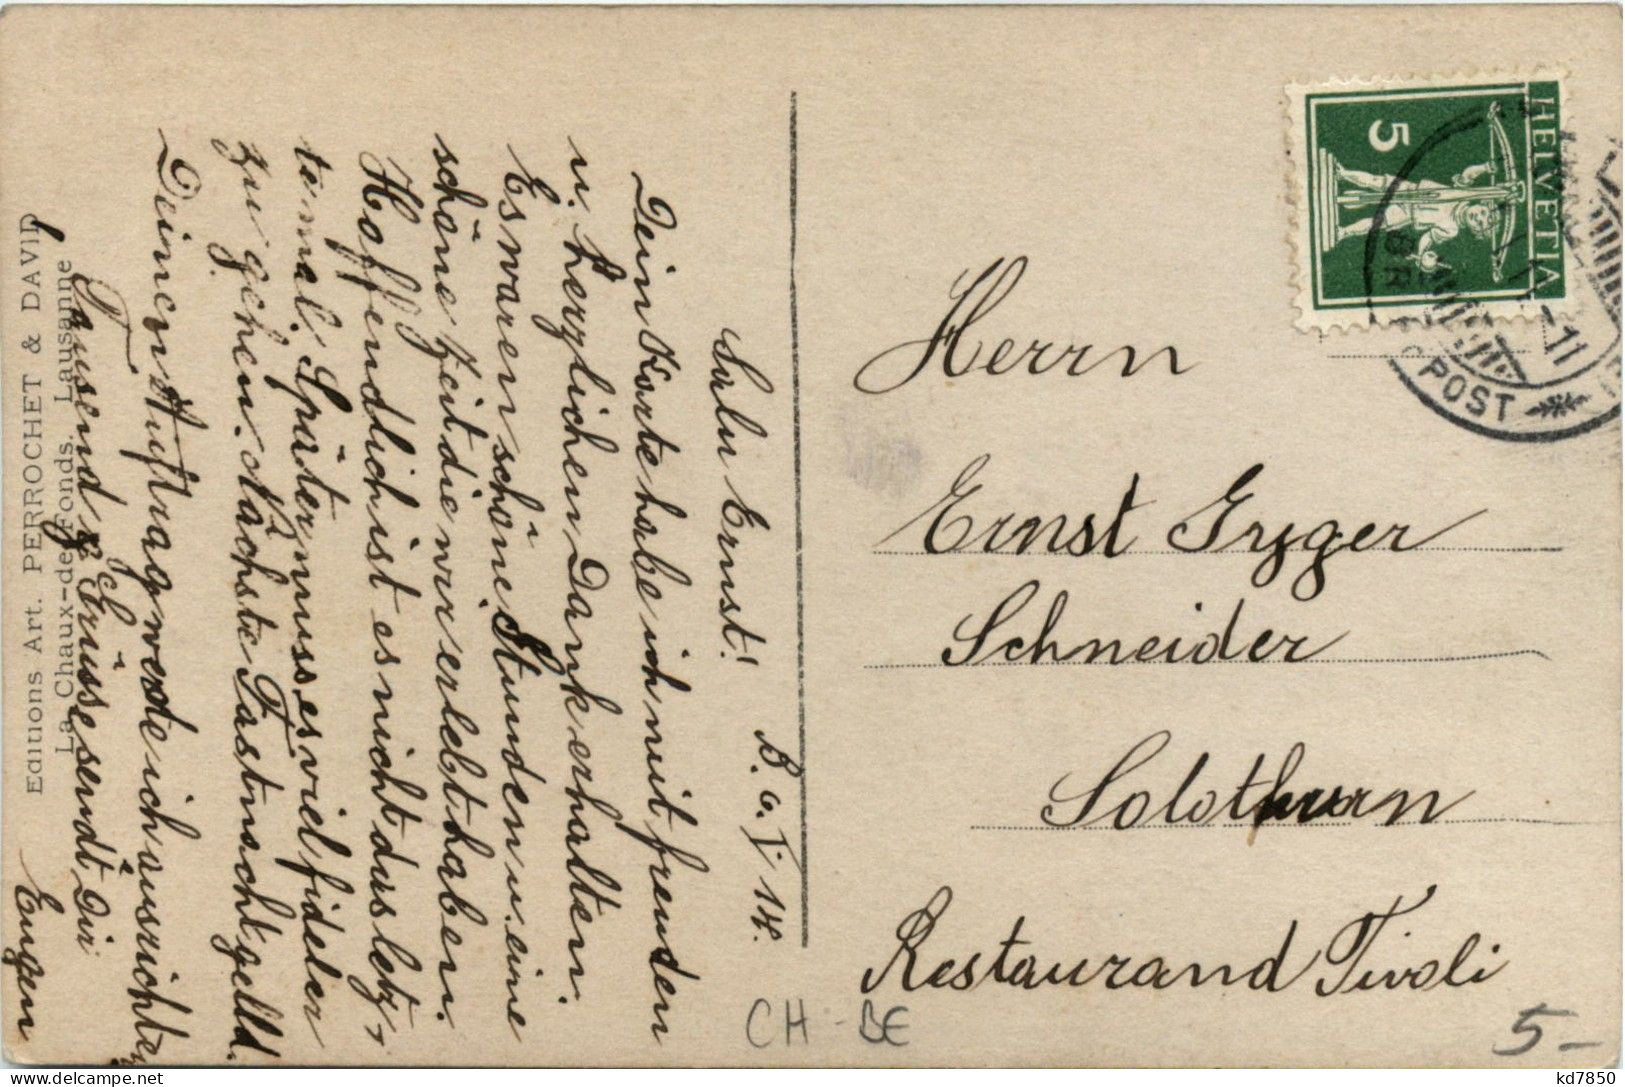 Salu Ernst! B. 9. I. 14.
Dein Karte habe ich mit freuden
u. herzlichen Dank erhalten.
Es waren schöne Stunden u. eine
schöne Zeit die wir erlebt haben.
Hoffendlich ist es nicht das letz,
temal. Später muss es viel fideler
zu gehen. Nächste Fastnacht gelld.
Deinen Auftrag werde ich ausrichten
Tausend Grüsse sendt Dir
Eugen
Editions Art. PERROCHET & DAVID
La Chaux-de-Fonds, Lausanne
HELVETIA
5
POST
Herrn
Ernst Gyger
Schneider
Solothurn
Restaurand Tivoli
CH - BE
5-
kd7850